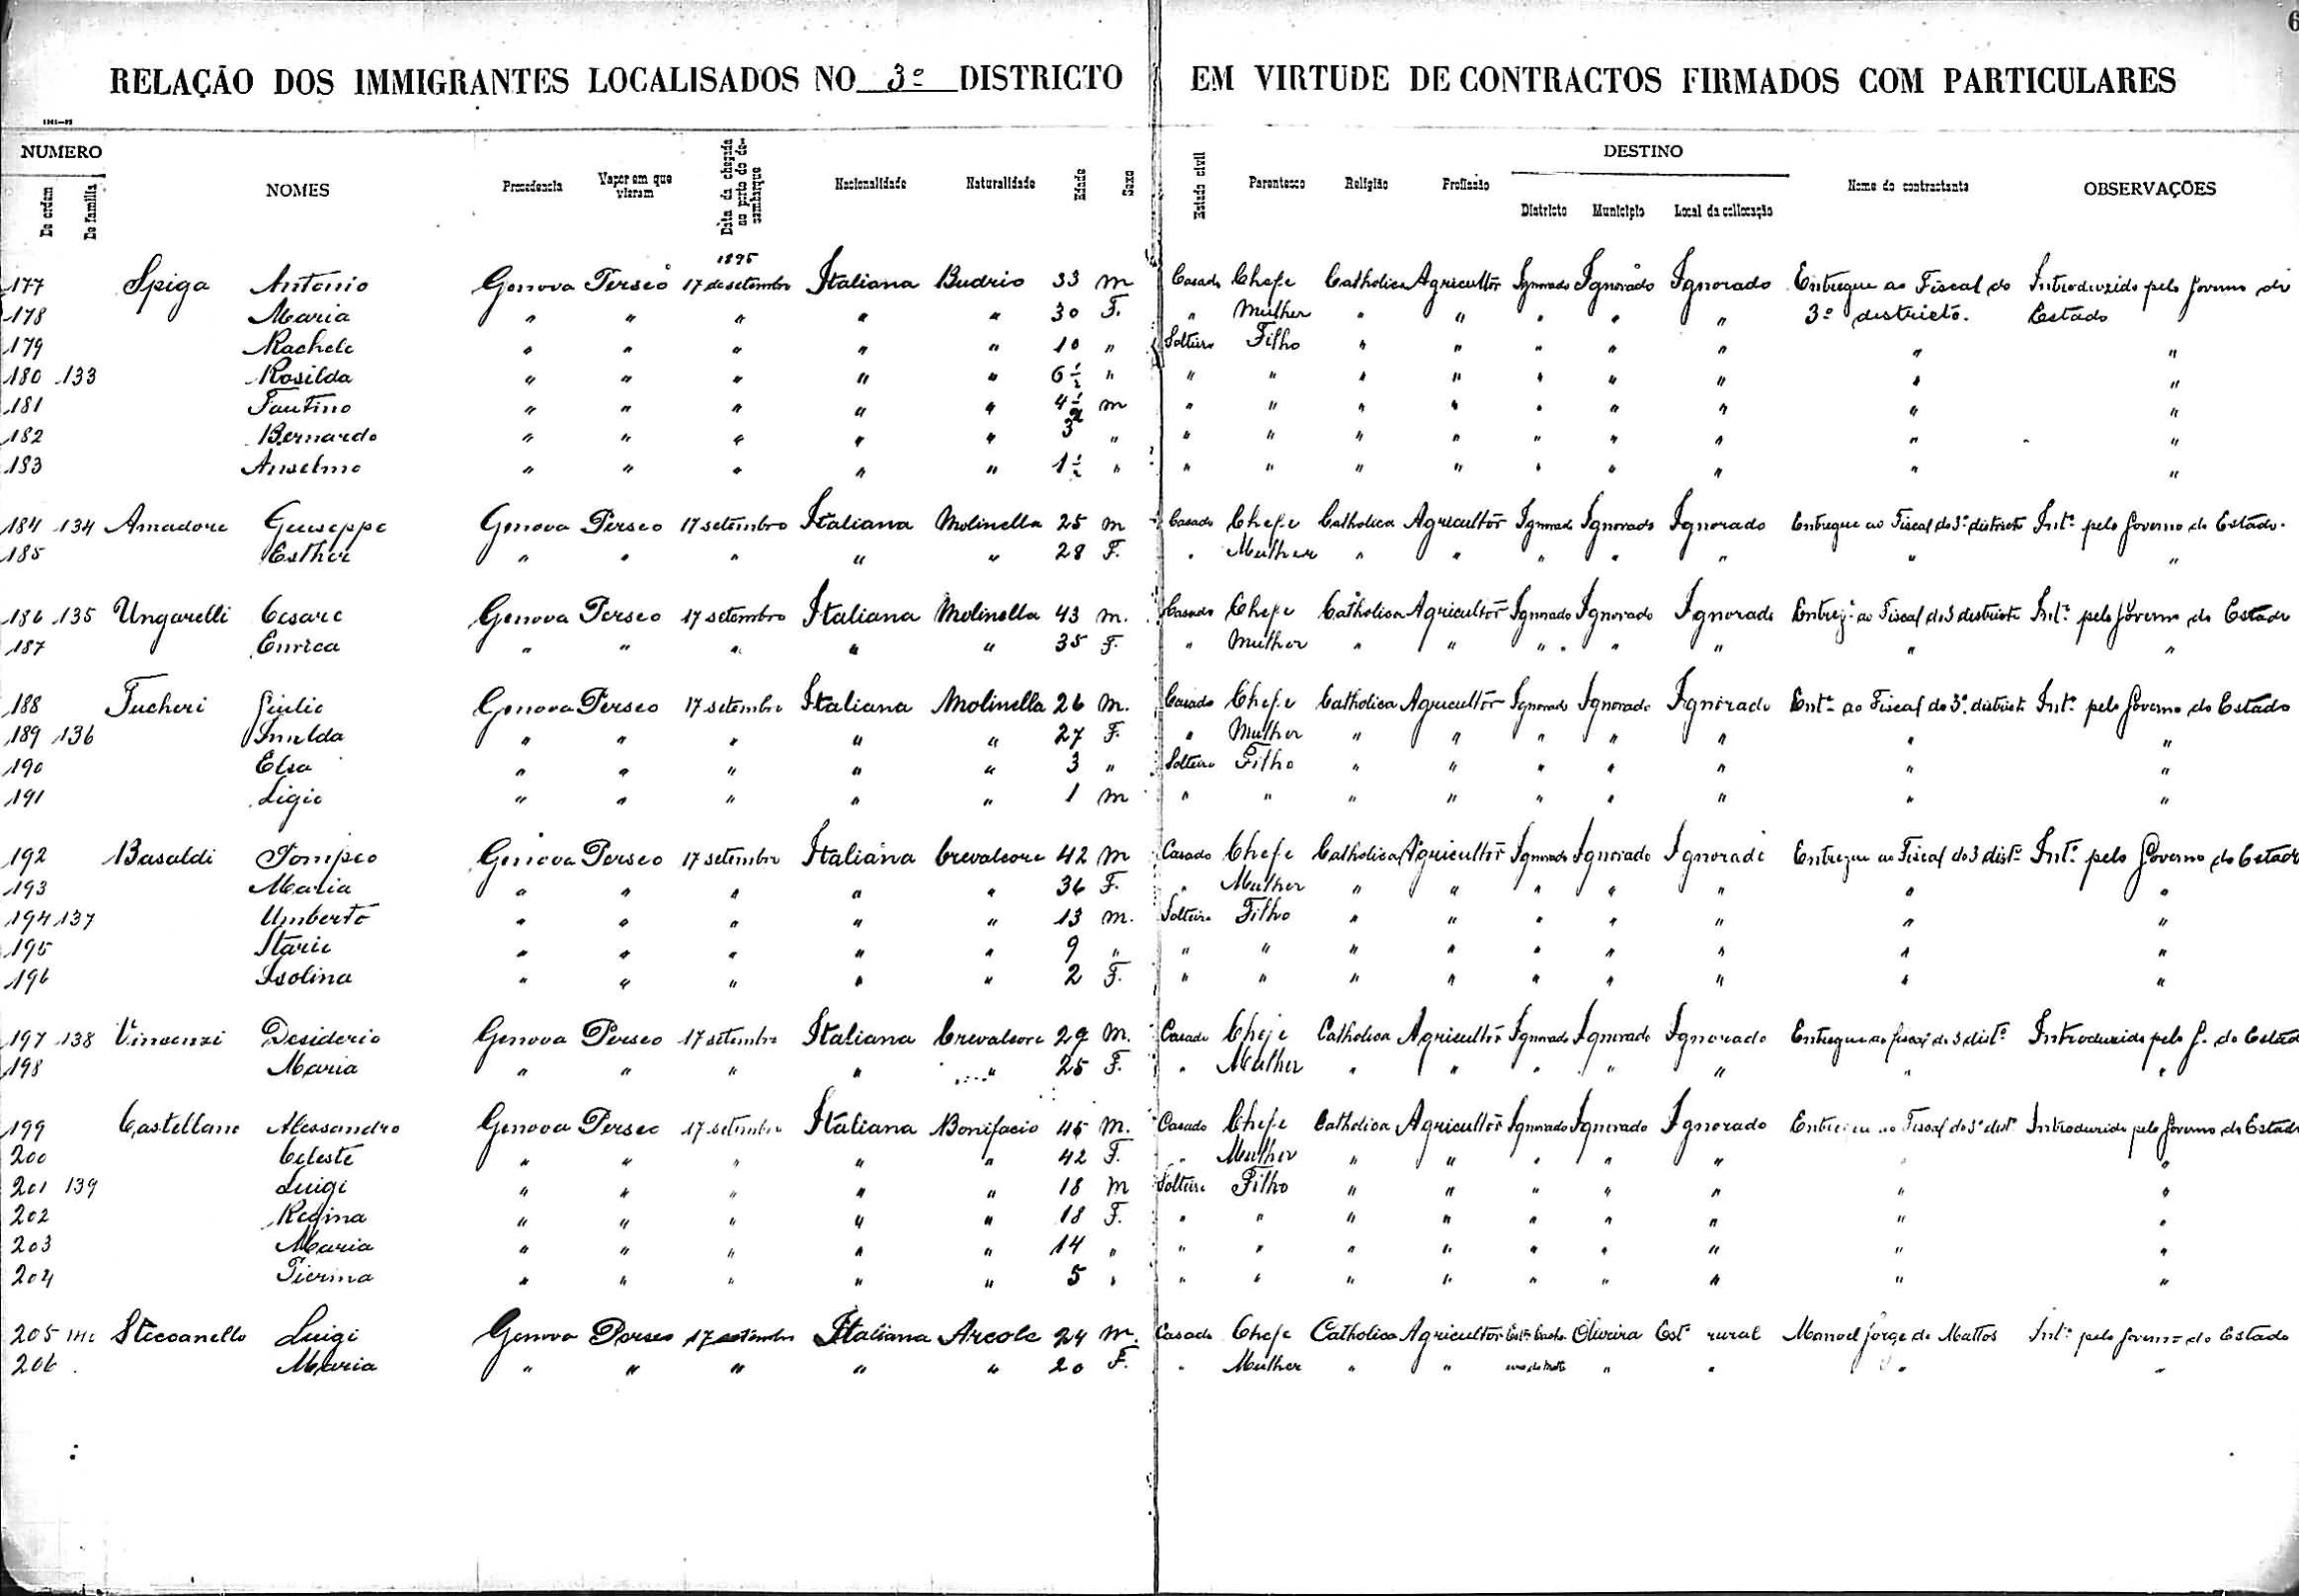 6
RELAÇÃO DOS IMMIGRANTES LOCALISADOS NO 3º DISTRICTO EM VIRTUDE DE CONTRACTOS FIRMADOS COM PARTICULARES
NUMERO De ordem De familia NOMES Procedencia Vapor em que vieram Data da chegada ao porto do desembarque Nacionalidade Naturalidade Edade Sexo Estado civil Parentesco Religião Profissão DESTINO Districto Municipio Local da collocação Nome do contractante OBSERVAÇÕES
1895
177 Spiga Antonio Genova Perseo 17 de setembro Italiana Budrio 33 m Casado Chefe Catholica Agricultor Ignorado Ignorado Ignorado Entregue ao Fiscal do Introduzido pelo Governo do
178 Maria " " " " " 30 F. " Mulher " " " " " 3º districto. Estado
179 Rachele " " " " " 10 " Solteiro Filho " " " " " " "
180 133 Rosilda " " " " " 6 1/2 " " " " " " " " " "
181 Faustino " " " " " 4 1/2 m " " " " " " " " "
182 Bernardo " " " " " 3 " " " " " " " " " "
183 Anselmo " " " " " 1 1/2 " " " " " " " " " "
184 134 Amadore Giuseppe Genova Perseo 17 setembro Italiana Molinella 25 m Casado Chefe Catholica Agricultor Ignorado Ignorado Ignorado Entregue ao Fiscal do 3º districto Intº pelo Governo do Estado.
185 Esther " " " " " 28 F. " Mulher " " " " " " "
186 135 Ungarelli Cesare Genova Perseo 17 setembro Italiana Molinella 43 m. Casado Chefe Catholica Agricultor Ignorado Ignorado Ignorado Entregº ao Fiscal do 3 districto Intº pelo Governo do Estado
187 Enrica " " " " " 35 F. " Mulher " " " " " " "
188 Tucheri Giulio Genova Perseo 17 setembro Italiana Molinella 26 m. Casado Chefe Catholica Agricultor Ignorado Ignorado Ignorado Entº ao Fiscal do 3º districto Intº pelo Governo do Estado
189 136 Imelda " " " " " 27 F. " Mulher " " " " " " "
190 Elsa " " " " " 3 " Solteiro Filho " " " " " " "
191 Ligio " " " " " 1 m " " " " " " " " "
192 Basaldi Pompeo Genova Perseo 17 setembro Italiana Crevalcore 42 m Casado Chefe Catholica Agricultor Ignorado Ignorado Ignorado Entregue ao Fiscal do 3 distº Intº pelo Governo do Estado
193 Maria " " " " " 36 F. " Mulher " " " " " " "
194 137 Umberto " " " " " 13 m. Solteiro Filho " " " " " " "
195 " " " " " 9 " " " " " " " " " "
196 Isolina " " " " " 2 F. " " " " " " " " "
197 138 Vincenzi Desiderio Genova Perseo 17 setembro Italiana Crevalcore 29 m. Casado Chefe Catholica Agricultor Ignorado Ignorado Ignorado Entregue ao fiscal do 3 distº Introduzido pelo G. do Estado
198 Maria " " " " " 25 F. " Mulher " " " " " " "
199 Castellano Alessandro Genova Perseo 17 setembro Italiana Bonifacio 45 m. Casado Chefe Catholica Agricultor Ignorado Ignorado Ignorado Entregue ao Fiscal do 3º distº Introduzido pelo Governo do Estado
200 Celeste " " " " " 42 F. " Mulher " " " " " " "
201 139 Luigi " " " " " 18 m Solteiro Filho " " " " " " "
202 Regina " " " " " 18 F. " " " " " " " " "
203 Maria " " " " " 14 " " " " " " " " " "
204 Pierina " " " " " 5 " " " " " " " " " "
205 Steccanello Luigi Genova Perseo 17 setembro Italiana Arcole 24 m. Casado Chefe Catholica Agricultor Oliveira Estº rural Manoel Jorge de Mattos Intº pelo Governo do Estado
206 Maria " " " " " 20 F. " Mulher " " " " " "